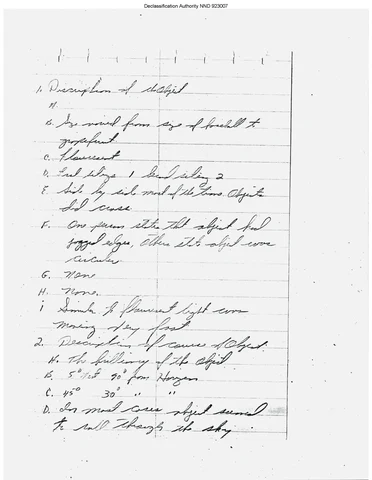 Declassification Authority NND 923007
1. Description of the Object
A.
B. Size varied from size of baseball to
grapefruit
C. Fluorescent
D. 1 2
E. Side by side most of the time. Objects
Did cross
F. One person states that object had
jagged edges, others state object was
circular
G. None
H. None.
I Similar to flourescent light was
moving very fast
2. Description of course of Object.
A. The brilliancy of the object
B. 5° 90° from Horizon
C. 45° 30° " "
D. In most cases object seemed
to roll through the sky.